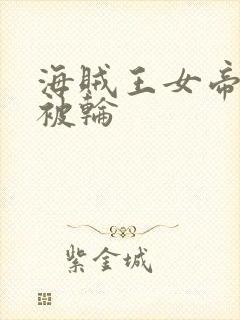 海賊王女帝
被輪
紫金城